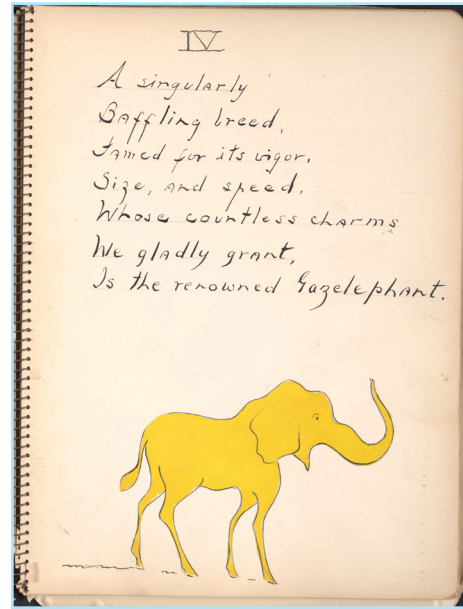 IV
A singularly
Baffling breed,
Famed for its vigor,
Size, and speed,
Whose countless charms
We gladly grant,
Is the renowned Gazelephant.